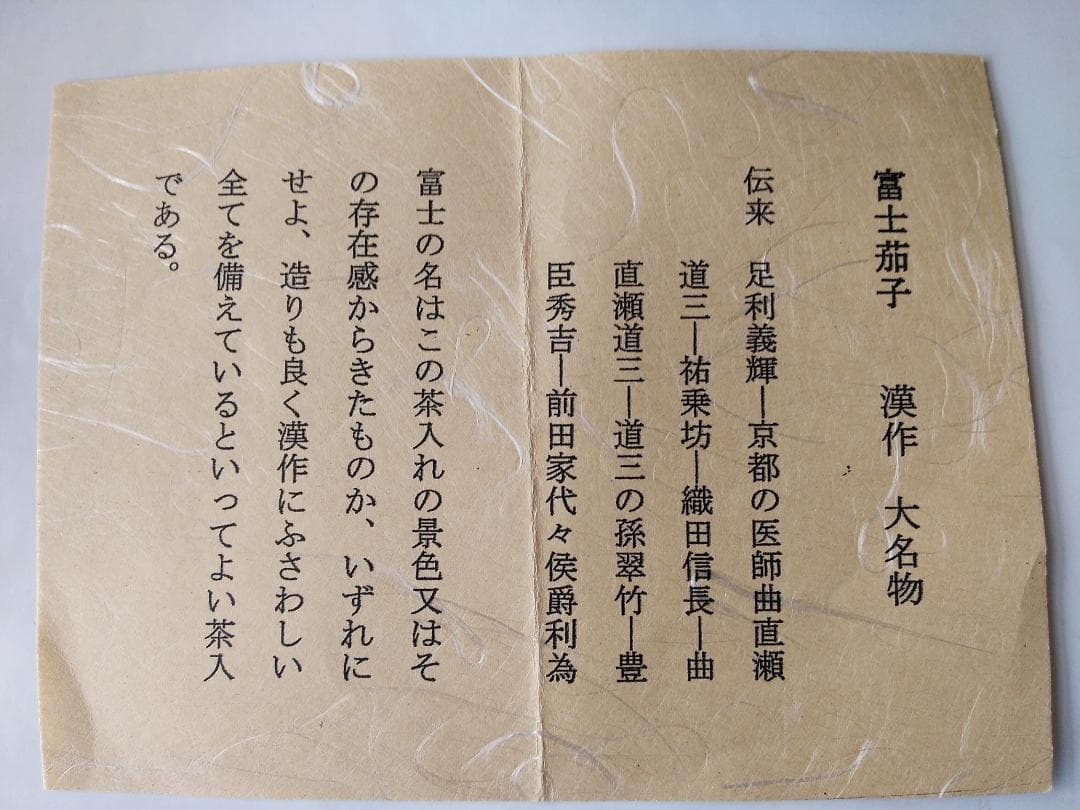 富士茄子　漢作　大名物
伝来　足利義輝―京都の医師曲直瀬
道三―祐乗坊―織田信長―曲
直瀬道三―道三の孫翠竹―豊
臣秀吉―前田家代々侯爵利為
富士の名はこの茶入れの景色又はそ
の存在感からきたものか、いずれに
せよ、造りも良く漢作にふさわしい
全てを備えているといってよい茶入
である。